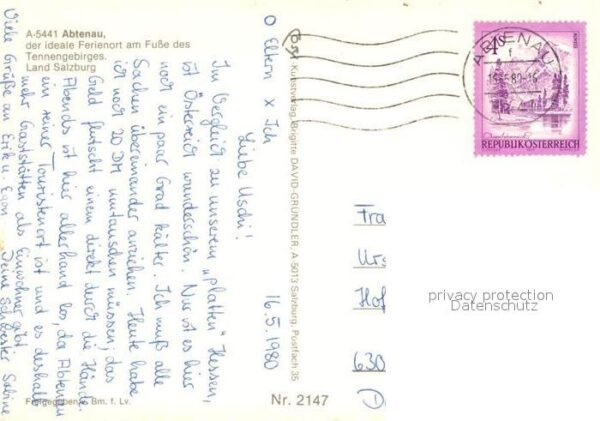 A-5441 Abtenau,
der ideale Ferienort am Fuße des
Tennengebirges.
Land Salzburg
O Eltern x Ich
16.5.1980
Liebe Uschi!
Im Vergleich zu unserem „platten“ Hessen,
ist Österreich wunderschön. Nur ist es hier
noch ein paar Grad kälter. Ich muß alle
Sachen übereinander anziehen. Heute habe
ich noch 20 DM umtauschen müssen; das
Geld flutscht einem direkt durch die Hände.
Abends ist hier allerhand los, da Abtenau
ein reiner Touristenort ist und es deshalb
mehr Gaststätten als Einwohner gibt.
Viele Grüße an Erik u. Egon Deine Schwester Sabine
Freigegeben Bm. f. Lv.
Kunstverlag Brigitte DAVID-GRÜNDLER, A 5013 Salzburg, Postfach 35
Nr. 2147
4 S
REPUBLIK ÖSTERREICH
ABTENAU
Fra
Urs
Hof
630
privacy protection
Datenschutz